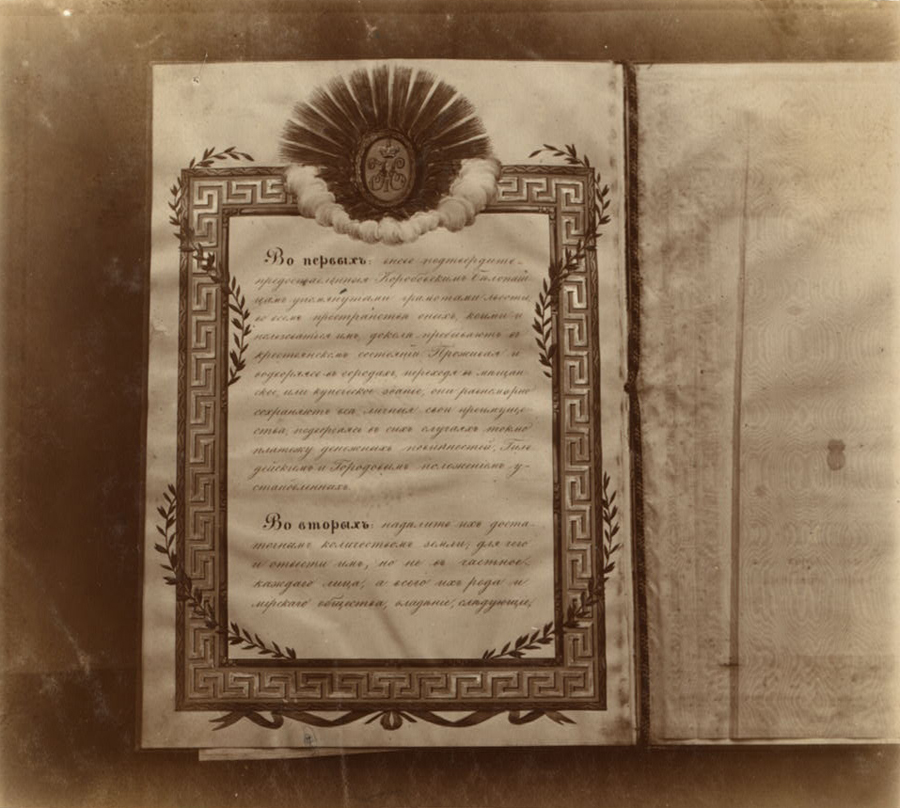 Во первыхъ: вновь подтвердить
предоставленныя Коробовскимъ бѣлопаш
цамъ упомянутыми грамотами льготы,
во всемъ пространствѣ оныхъ, коими и
пользоваться имъ, доколѣ пребываютъ въ
крестьянскомъ состояніи. Проживая и
водворяясь въ городахъ, переходя въ мѣщан-
ское, или купеческое званіе, они равномѣрно
сохраняютъ всѣ личныя свои преимуще-
ства, подвергаясь въ сихъ случаяхъ токмо
платежу денежныхъ повинностей, Гиль
дейскимъ и Городовымъ положеніемъ у-
становленныхъ.
Во вторыхъ: надѣлить ихъ доста-
точнымъ количествомъ земли; для чего
и отвести имъ, но не въ частное,
каждаго лица, а всего ихъ рода и
мірскаго общества, владѣніе, слѣдующіе,